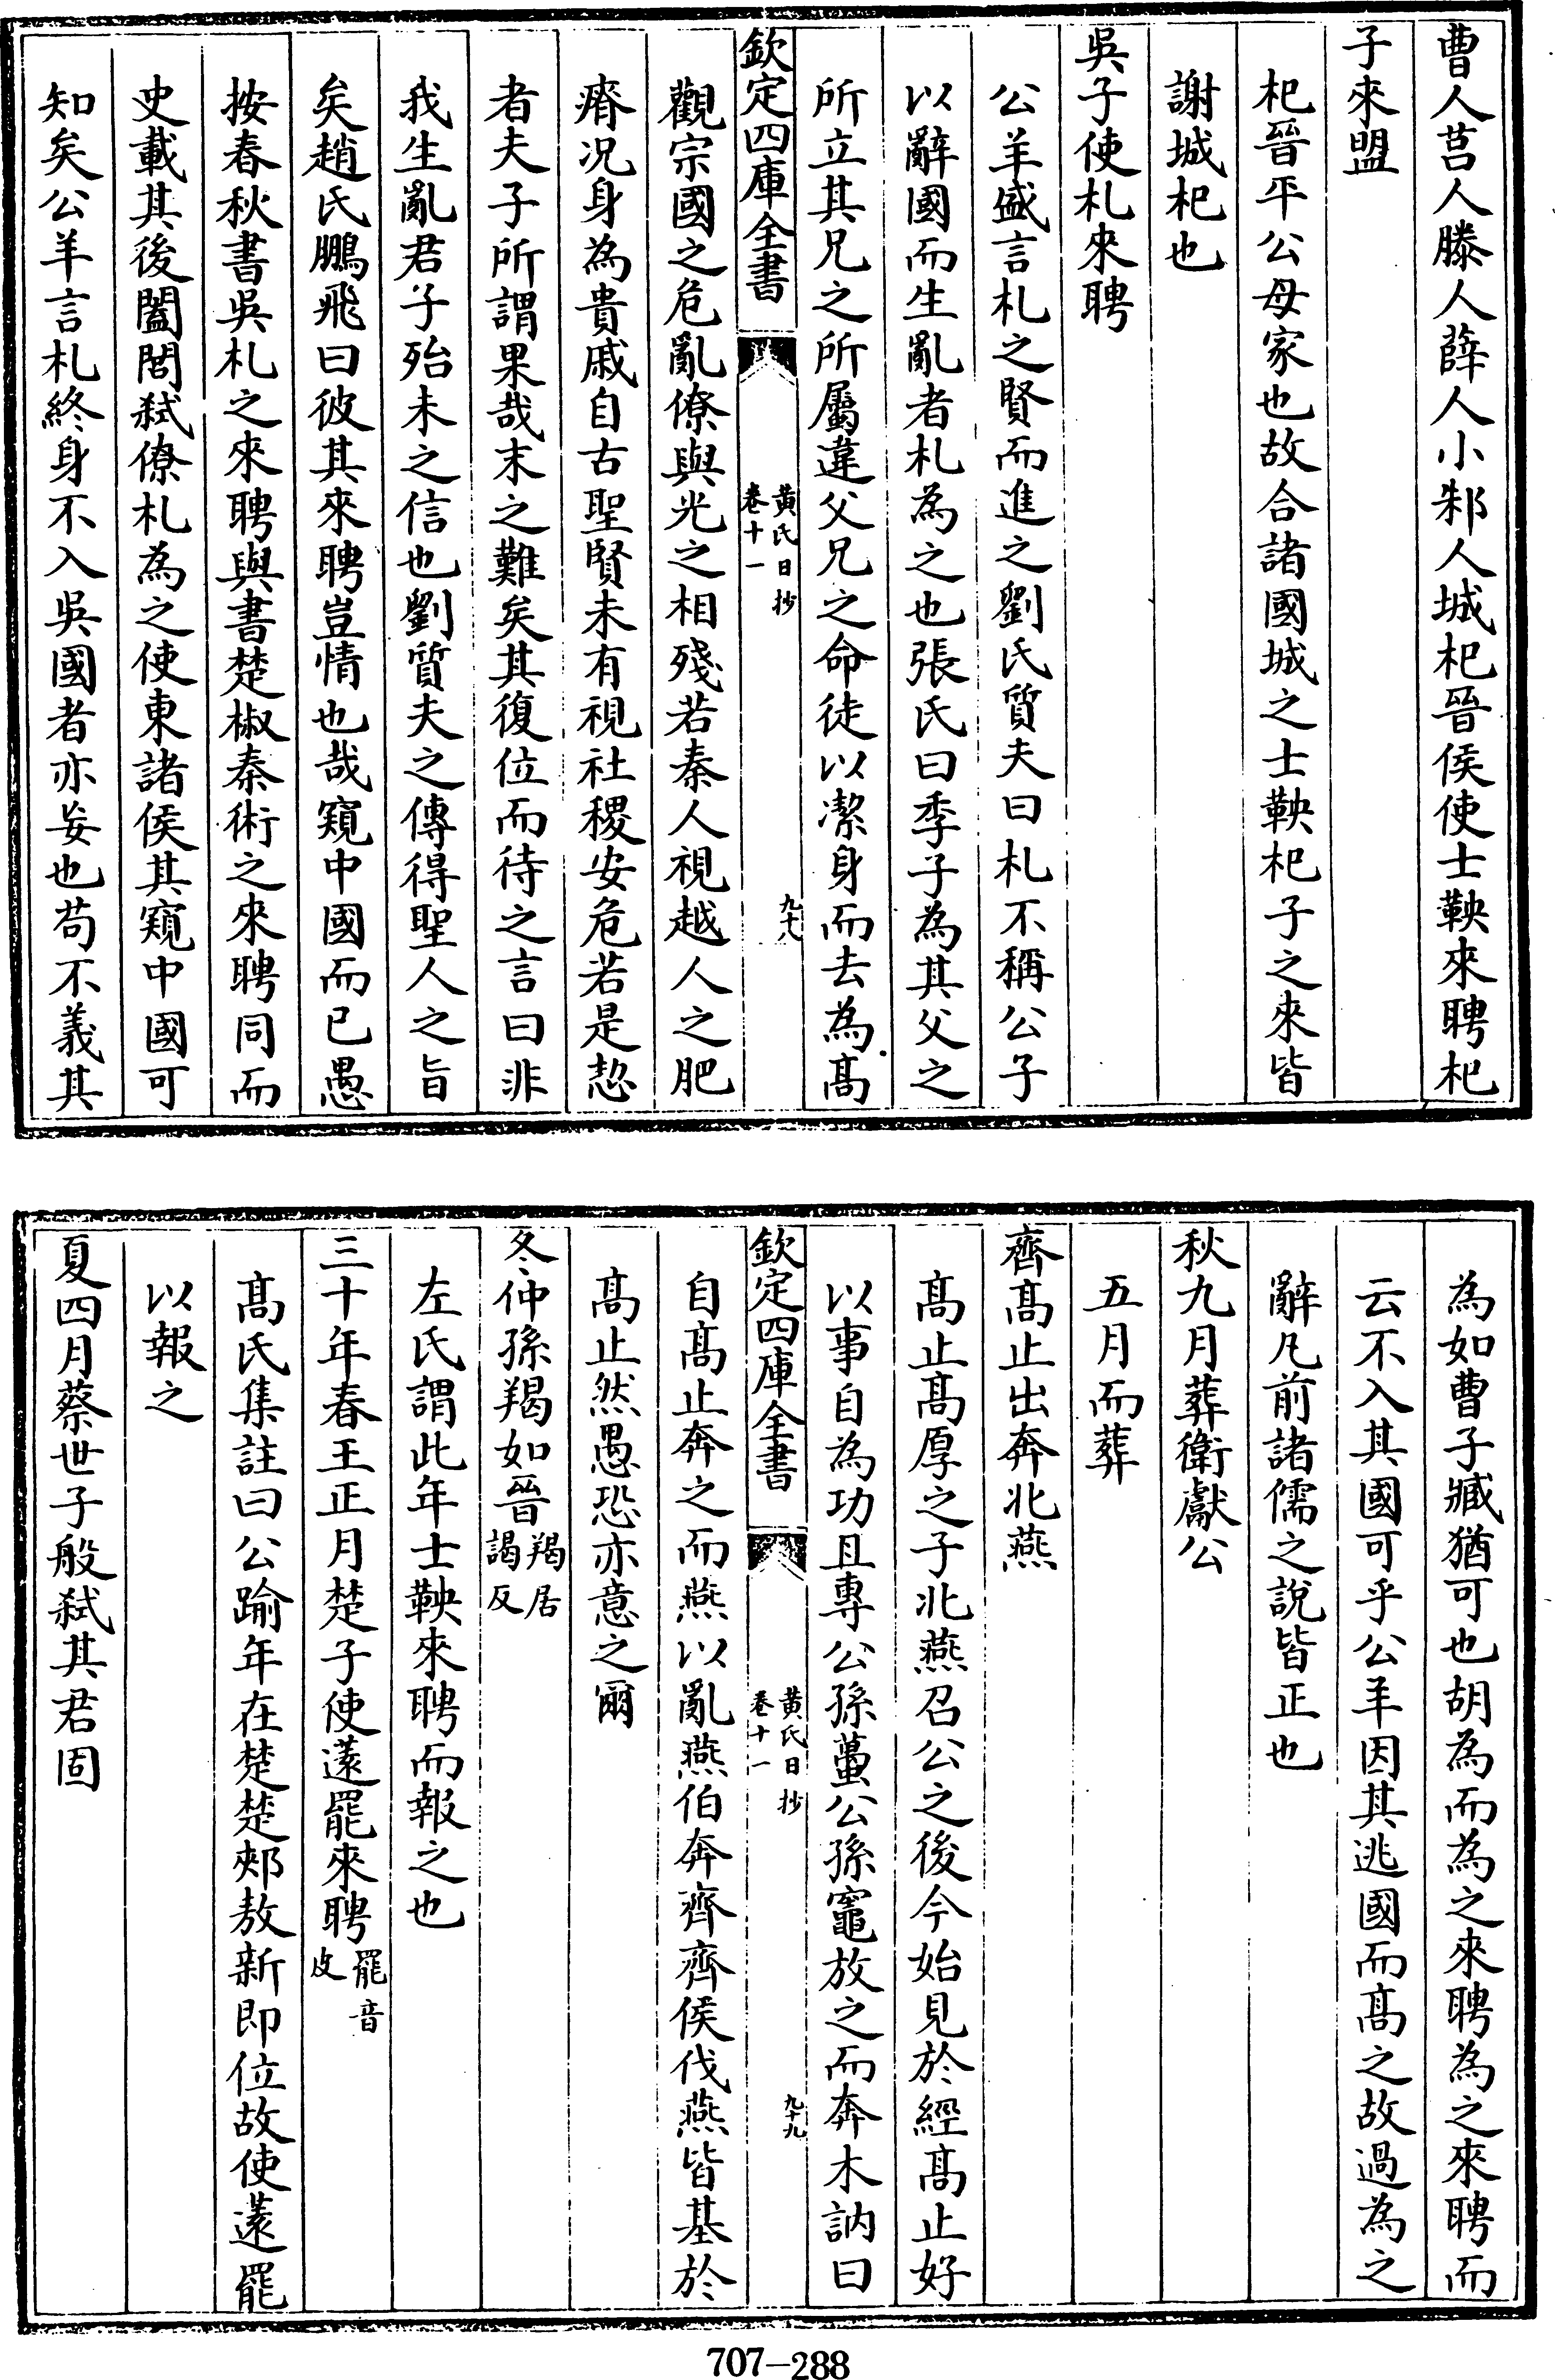 曹人莒人滕人薛人小邾人城杞晉侯使士鞅來聘杞
子來盟
杞晉平公母家也故合諸國城之士鞅杞子之來皆
謝城杞也
吳子使札來聘
公羊盛言札之賢而進之劉氏質夫曰札不稱公子
以辭國而生亂者札為之也張氏曰季子為其父之
所立其兄之所屬違父兄之命徒以潔身而去為髙
欽定四庫全書
黄氏日抄
卷十一
九十八
觀宗國之危亂僚與光之相殘若秦人視越人之肥
瘠况身為貴戚自古聖賢未有視社稷安危若是恝
者夫子所謂果哉末之難矣其復位而待之言曰非
我生亂君子殆未之信也劉質夫之傳得聖人之旨
矣趙氏鵬飛曰彼其來聘豈情也哉窺中國而已愚
按春秋書吳札之來聘與書楚椒秦術之來聘同而
史載其後闔閭弑僚札為之使東諸侯其窺中國可
知矣公羊言札終身不入吳國者亦妄也苟不義其
為如曹子臧猶可也胡為而為之來聘為之來聘而
云不入其國可乎公羊因其逃國而髙之故過為之
辭凡前諸儒之說皆正也
秋九月葬衛獻公
五月而葬
齊髙止出奔北燕
髙止髙厚之子北燕召公之後今始見於經髙止好
以事自為功且專公孫蠆公孫竈放之而奔木訥曰
欽定四庫全書
黄氏日抄
卷十一
九十九
自髙止奔之而燕以亂燕伯奔齊齊侯伐燕皆基於
髙止然愚恐亦意之爾
冬仲孫羯如晉羯居謁反
左氏謂此年士鞅來聘而報之也
三十年春王正月楚子使薳罷來聘罷音皮
髙氏集註曰公踰年在楚楚郟敖新即位故使薳罷
以報之
夏四月蔡世子般弑其君固
707-288